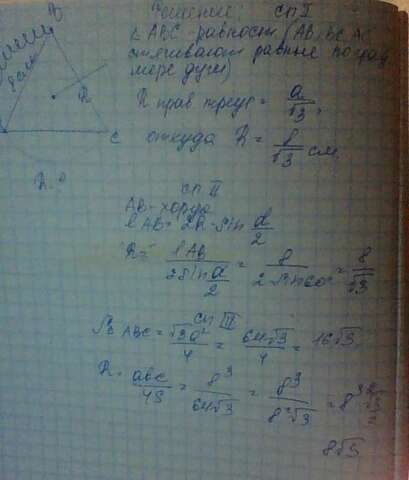 Решение: сп I
B
△ ABC - равност (AB, BC, AC
8см
стягивают равные по
мере дуги)
R
R прав треуг = a/√3,
C
откуда R = 8/√3 см
R - ?
сп II
AB - хорда
l AB = 2R · sin α/2
R = l AB / 2 sin α/2 = 8 / 2 sin 60° = 8/√3
сп III
S ABC = √3a²/4 = 64√3/4 = 16√3
R = abc/4S = 8³/64√3 = 8³/8²√3
8√3